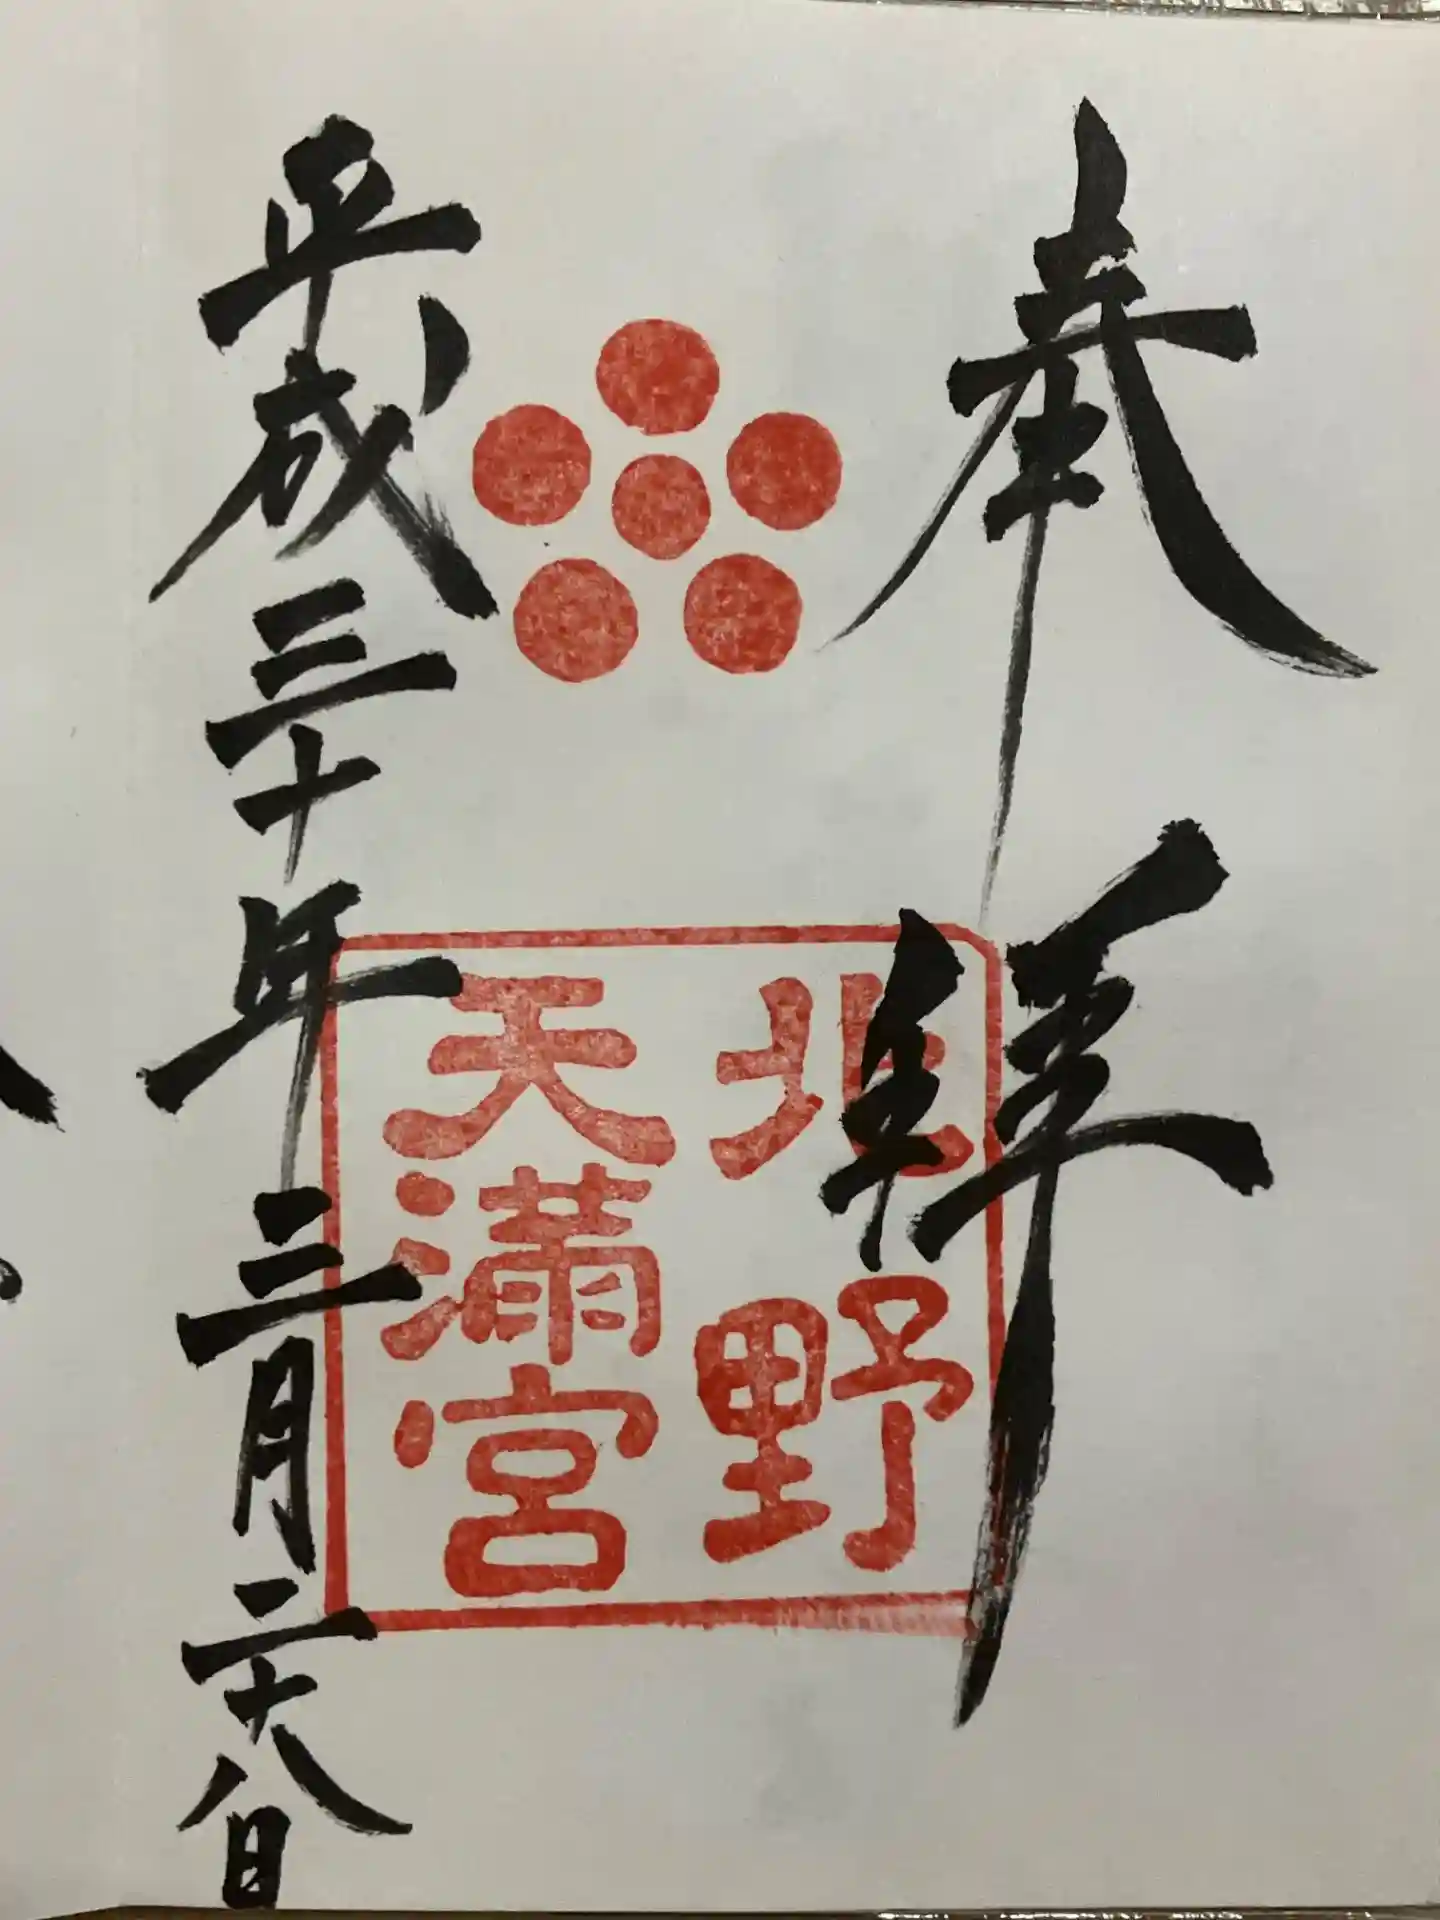 奉拝
北野
天満宮
平成三十年三月二十八日